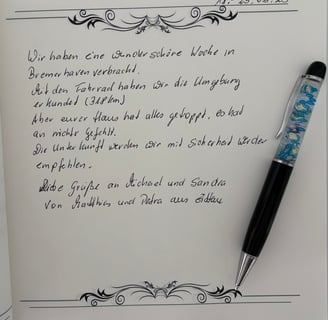 Wir haben eine wunderschöne Woche in
Bremerhaven verbracht.
Mit den Fahrrad haben wir die Umgebung
erkundet
Aber eurer Haus hat alles getoppt, es hat
an nichts gefehlt.
Die Unterkunft werden wir mit Sicherheit weiter
empfehlen.
Liebe Grüße an Michael und Sandra
von Matthias und Petra aus